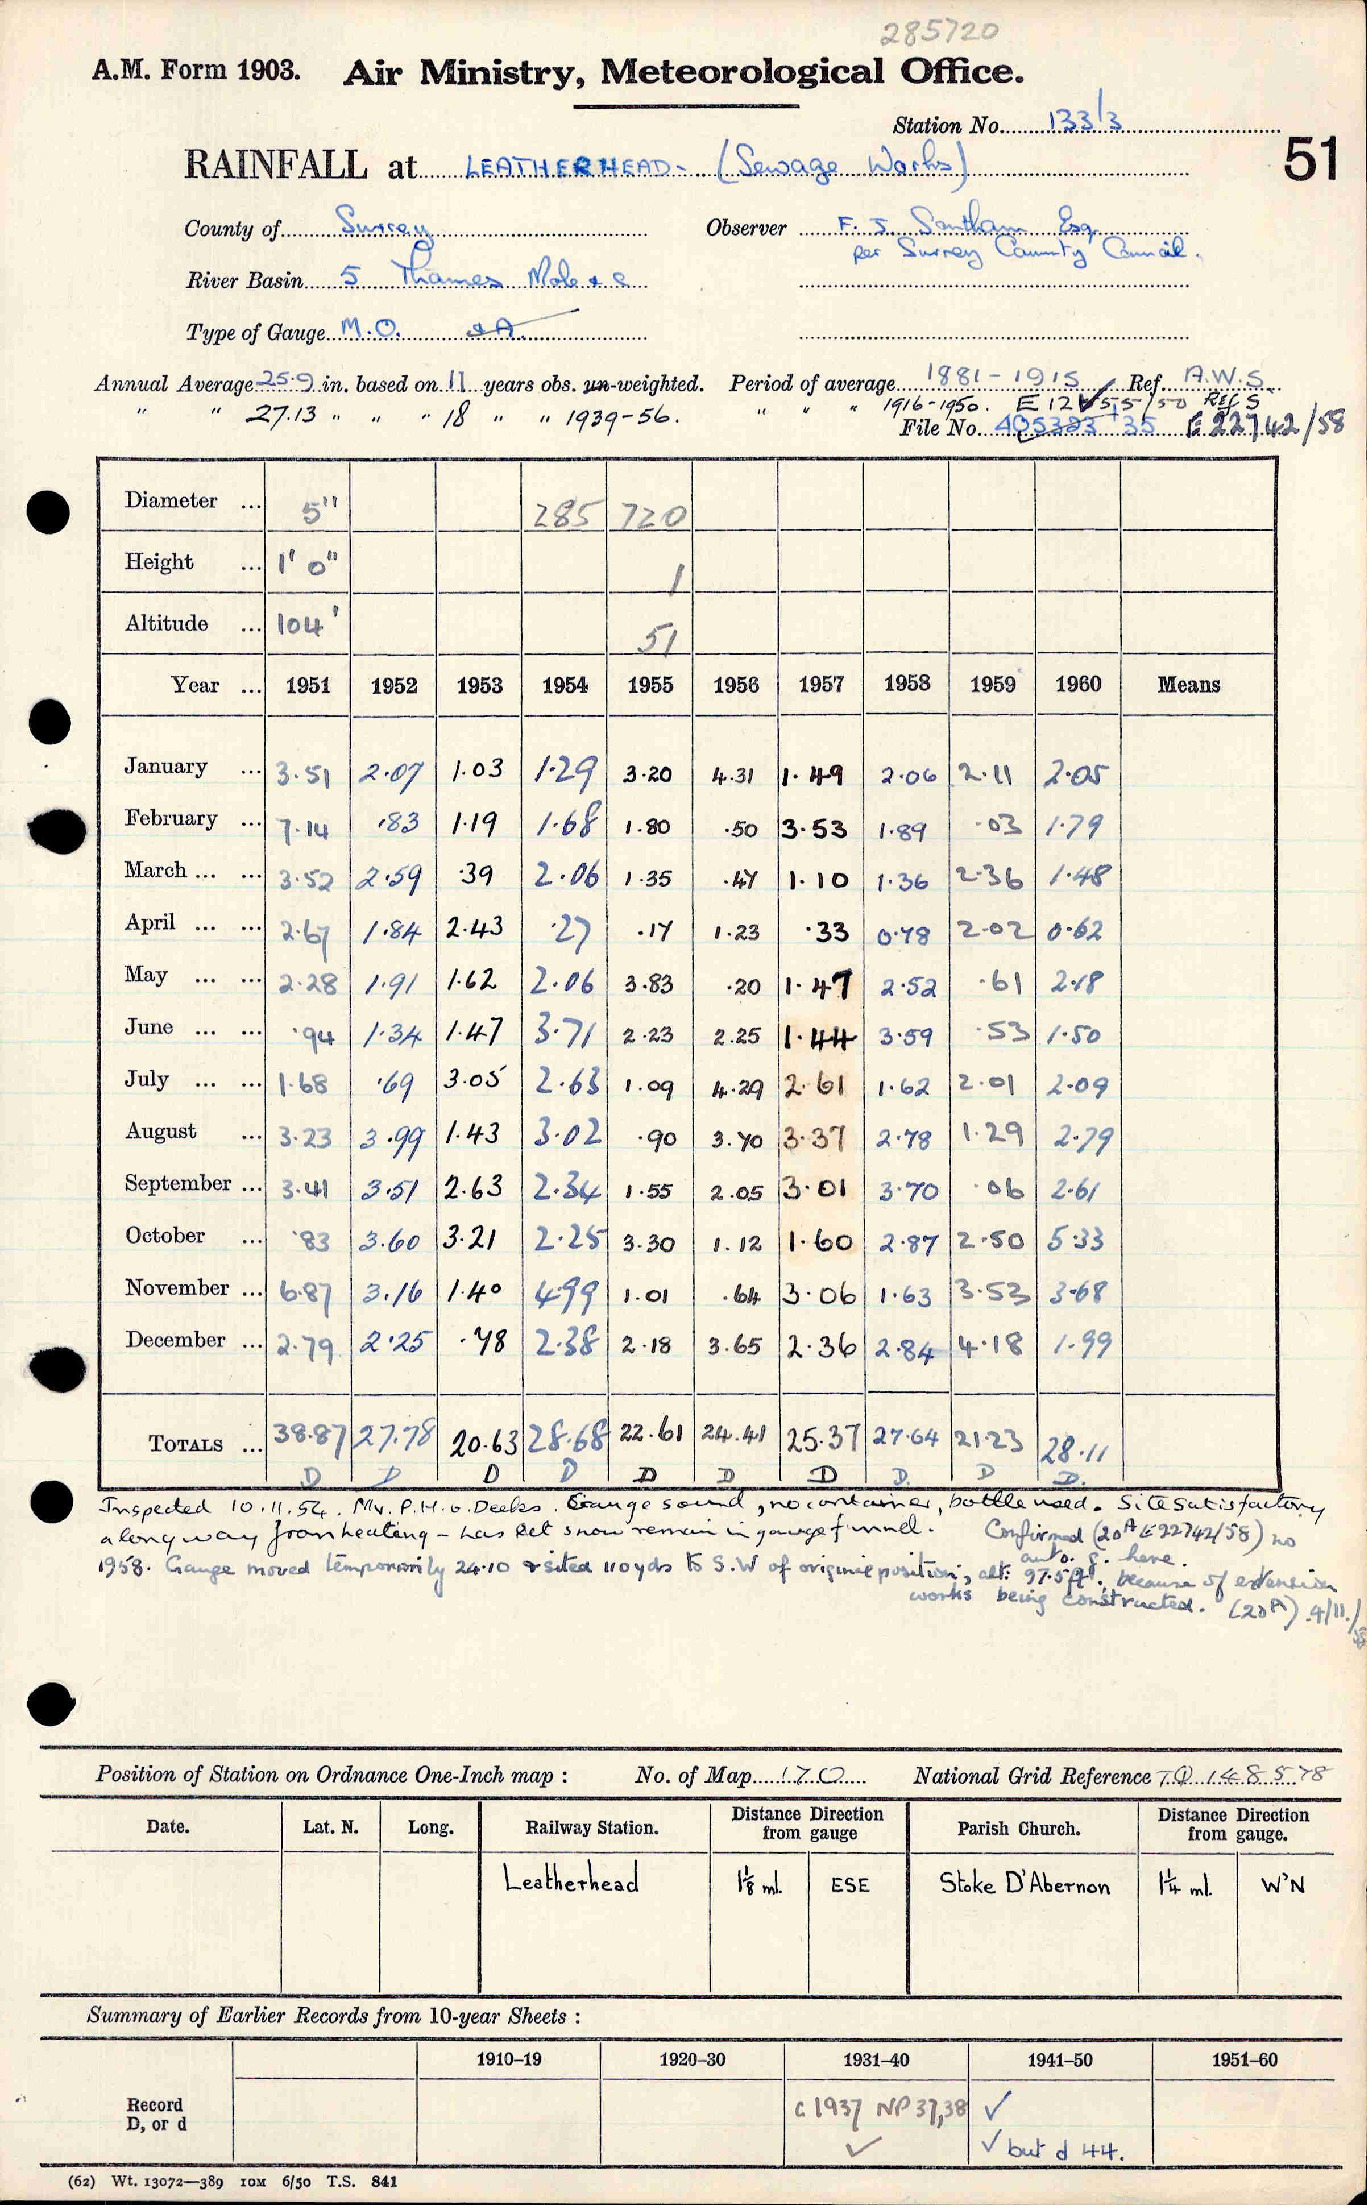 285720
A.M. Form 1903. Air Ministry, Meteorological Office.
Station No. 133/3
51
RAINFALL at LEATHERHEAD - (Sewage Works)
County of Surrey Observer F. J. Santham Esq.
per Surrey County Council.
River Basin 5 Thames Mole & c
Type of Gauge M.O. & A.
Annual Average 25.9 in. based on 11 years obs. un-weighted. Period of average 1881-1915 Ref. A.W.S.
" " 27.13 " " " 18 " " 1939-56. " " " 1916-1950. E 12 55/50 Ref S
File No. 405383/35 E 22742/58
Diameter ... 5" 285 720
Height ... 1' 0" 1
Altitude ... 104' 51
Year ... 1951 1952 1953 1954 1955 1956 1957 1958 1959 1960 Means
January ... 3.51 2.07 1.03 1.29 3.20 4.31 1.49 2.06 2.11 2.05
February ... 7.14 .83 1.19 1.68 1.80 .50 3.53 1.89 .03 1.79
March ... ... 3.52 2.59 .39 2.06 1.35 .47 1.10 1.36 2.36 1.48
April ... ... 2.67 1.84 2.43 .27 .17 1.23 .33 0.78 2.02 0.62
May ... ... 2.28 1.91 1.62 2.06 3.83 .20 1.47 2.52 .61 2.18
June ... ... .94 1.34 1.47 3.71 2.23 2.25 1.44 3.59 .53 1.50
July ... ... 1.68 .69 3.05 2.63 1.09 4.29 2.61 1.62 2.01 2.09
August ... 3.23 3.99 1.43 3.02 .90 3.70 3.37 2.78 1.29 2.79
September ... 3.41 3.51 2.63 2.34 1.55 2.05 3.01 3.70 .06 2.61
October ... .83 3.60 3.21 2.25 3.30 1.12 1.60 2.87 2.50 5.33
November ... 6.87 3.16 1.40 4.99 1.01 .64 3.06 1.63 3.53 3.68
December ... 2.79 2.25 .78 2.38 2.18 3.65 2.36 2.84 4.18 1.99
TOTALS ... 38.87 27.78 20.63 28.68 22.61 24.41 25.37 27.64 21.23 28.11
D D D D D D D D. D D.
Inspected 10.11.54. Mr. P.H.O. Deeks. Gauge sound, no container, bottle used. Site satisfactory
a long way from heating - has let snow remain in gauge funnel. Confirmed (20A E22742/58) no
auto. g. here.
1958. Gauge moved temporarily 24.10 & sited 110 yds to S.W of original position, alt: 97.5 ft. because of extension
works being constructed. (20A) 4/11/58
Position of Station on Ordnance One-Inch map : No. of Map 170 National Grid Reference TQ 148578
Date. Lat. N. Long. Railway Station. Distance Direction from gauge Parish Church. Distance Direction from gauge.
Leatherhead 1⅛ ml. ESE Stoke D'Abernon 1¼ ml. W'N
Summary of Earlier Records from 10-year Sheets :
1910–19 1920–30 1931–40 1941–50 1951–60
Record
D, or d
c 1937 NP 37,38 ✓
✓ ✓ but d 44.
(62) Wt. 13072—389 10M 6/50 T.S. 841